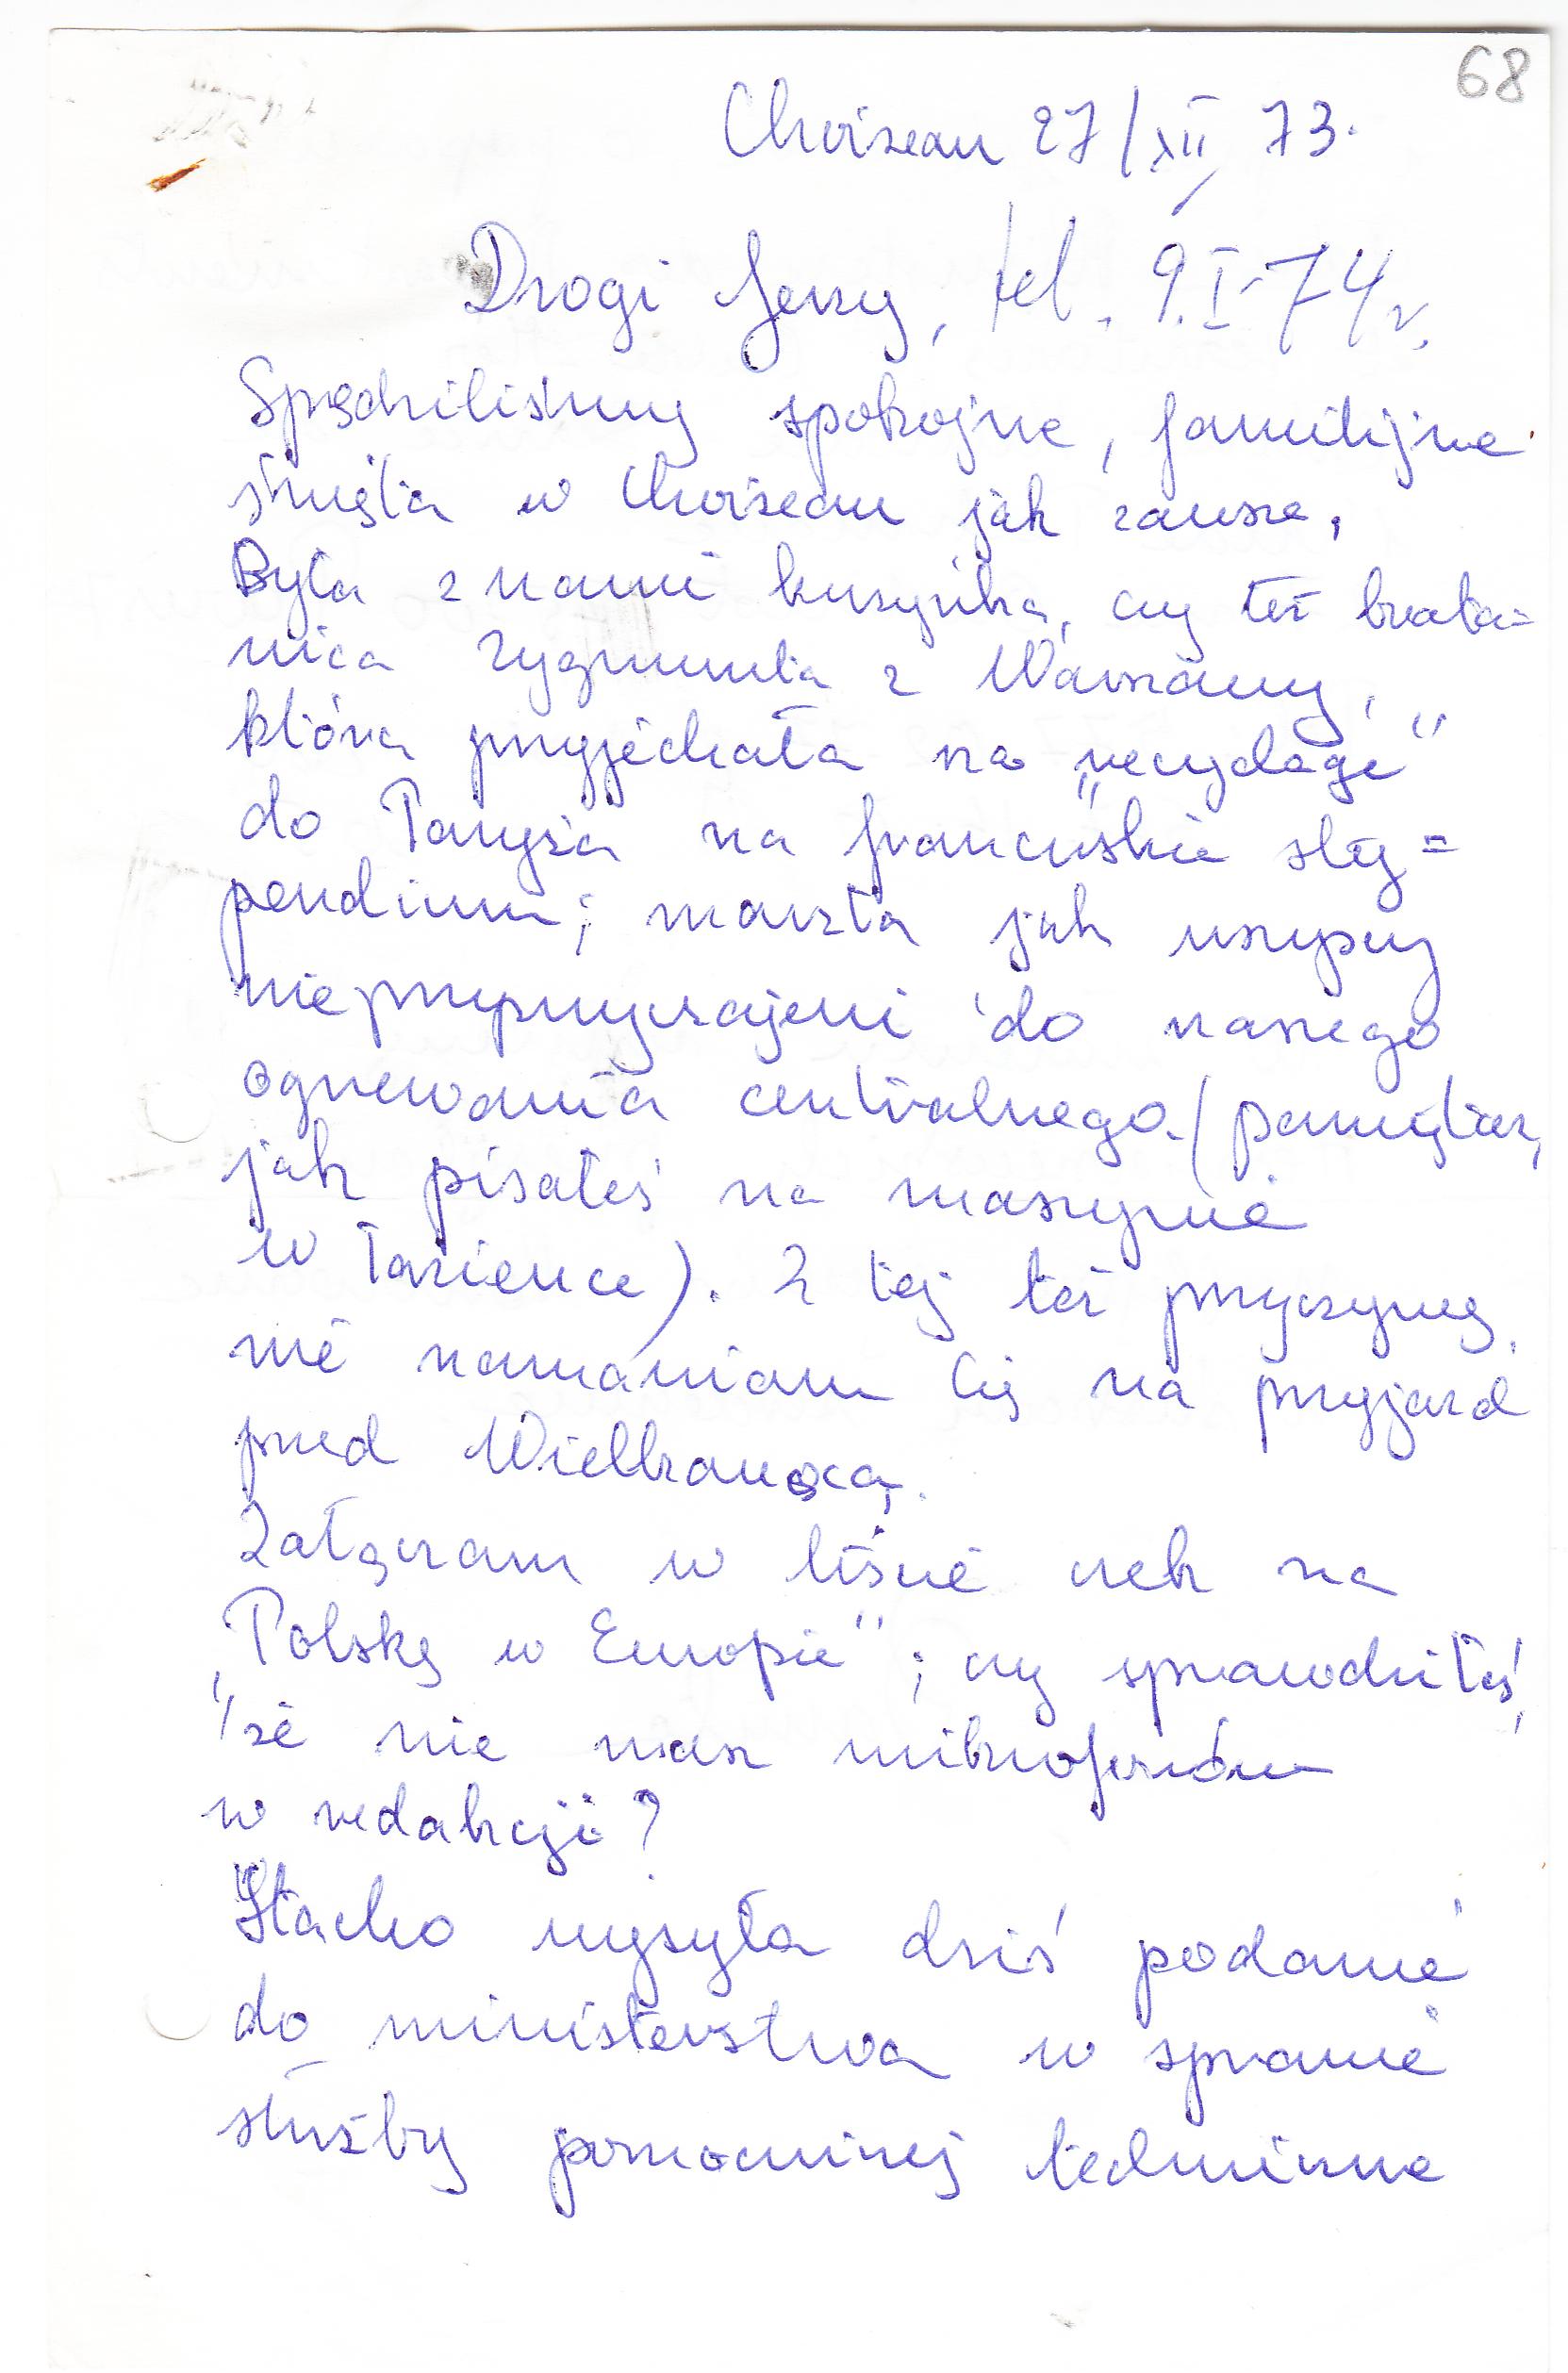 68
Choiseau 27/XII 73.
Drogi Jerzy, tel. 9.I-74r.
Spędziliśmy spokojne, familijne
święta w Choiseau jak zawsze,
Była z nami kuzynka, czy też brata=
nica Zygmunta z Warszawy,
która przyjechała na „recyclage"
do Paryża na francuskie sty=
pendium; marzła jak wszyscy
nieprzyzwyczajeni do naszego
ogrzewania centralnego (pamiętasz,
jak pisałeś na maszynie
w łazience). Z tej też przyczyny
nie namawiam Cię na przyjazd
przed Wielkanocą.
Załączam w liście czek na
„Polskę w Europie"; czy sprawdziłeś,
że nie masz mikrofonów
w redakcji?
Stacho wysyła dziś podanie
do ministerstwa w sprawie
służby pomocniczej technicznej